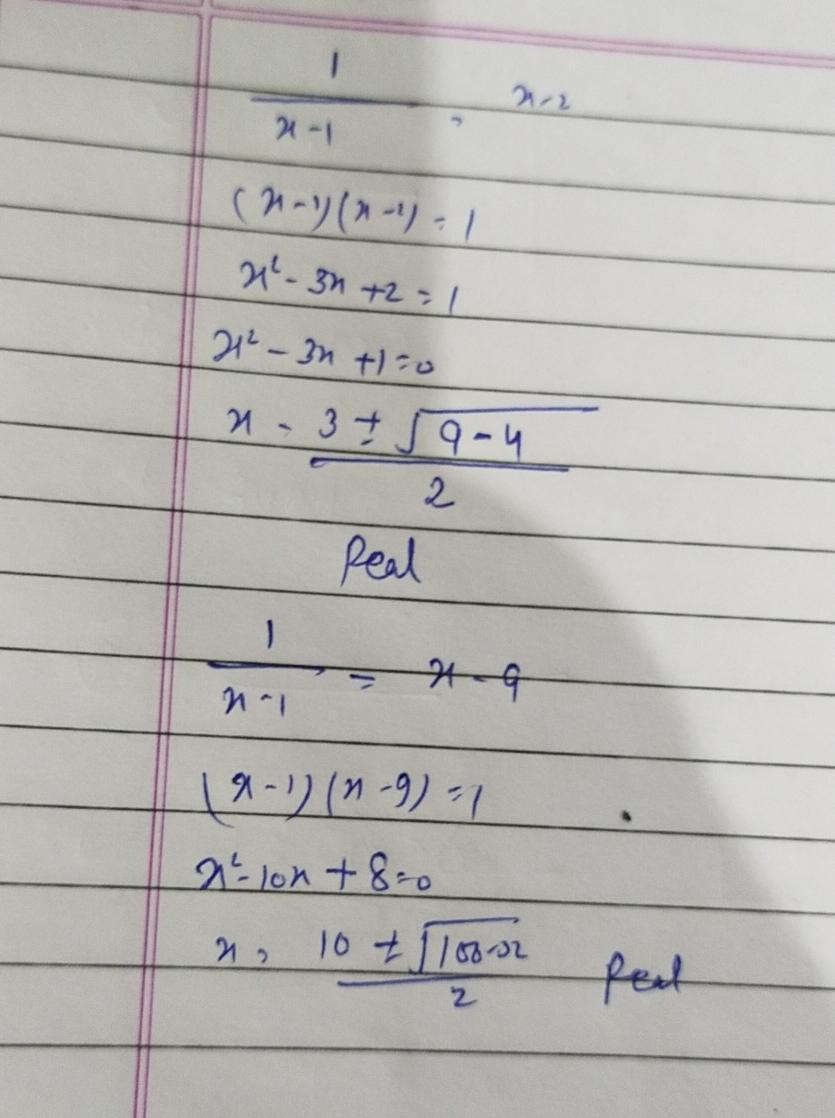 1/(x-1) = x-2
(x-1)(x-2) = 1
x² - 3x + 2 = 1
x² - 3x + 1 = 0
x = (3 ± √(9-4))/2
Real
1/(x-1) = x-9
(x-1)(x-9) = 1
x² - 10x + 8 = 0
x = (10 ± √(100-32))/2 Real